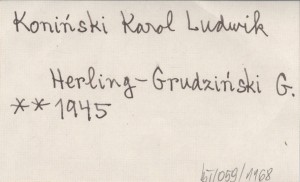 Koniński Karol Ludwik
Herling-Grudziński G.
** 1945
BJ/059/1168